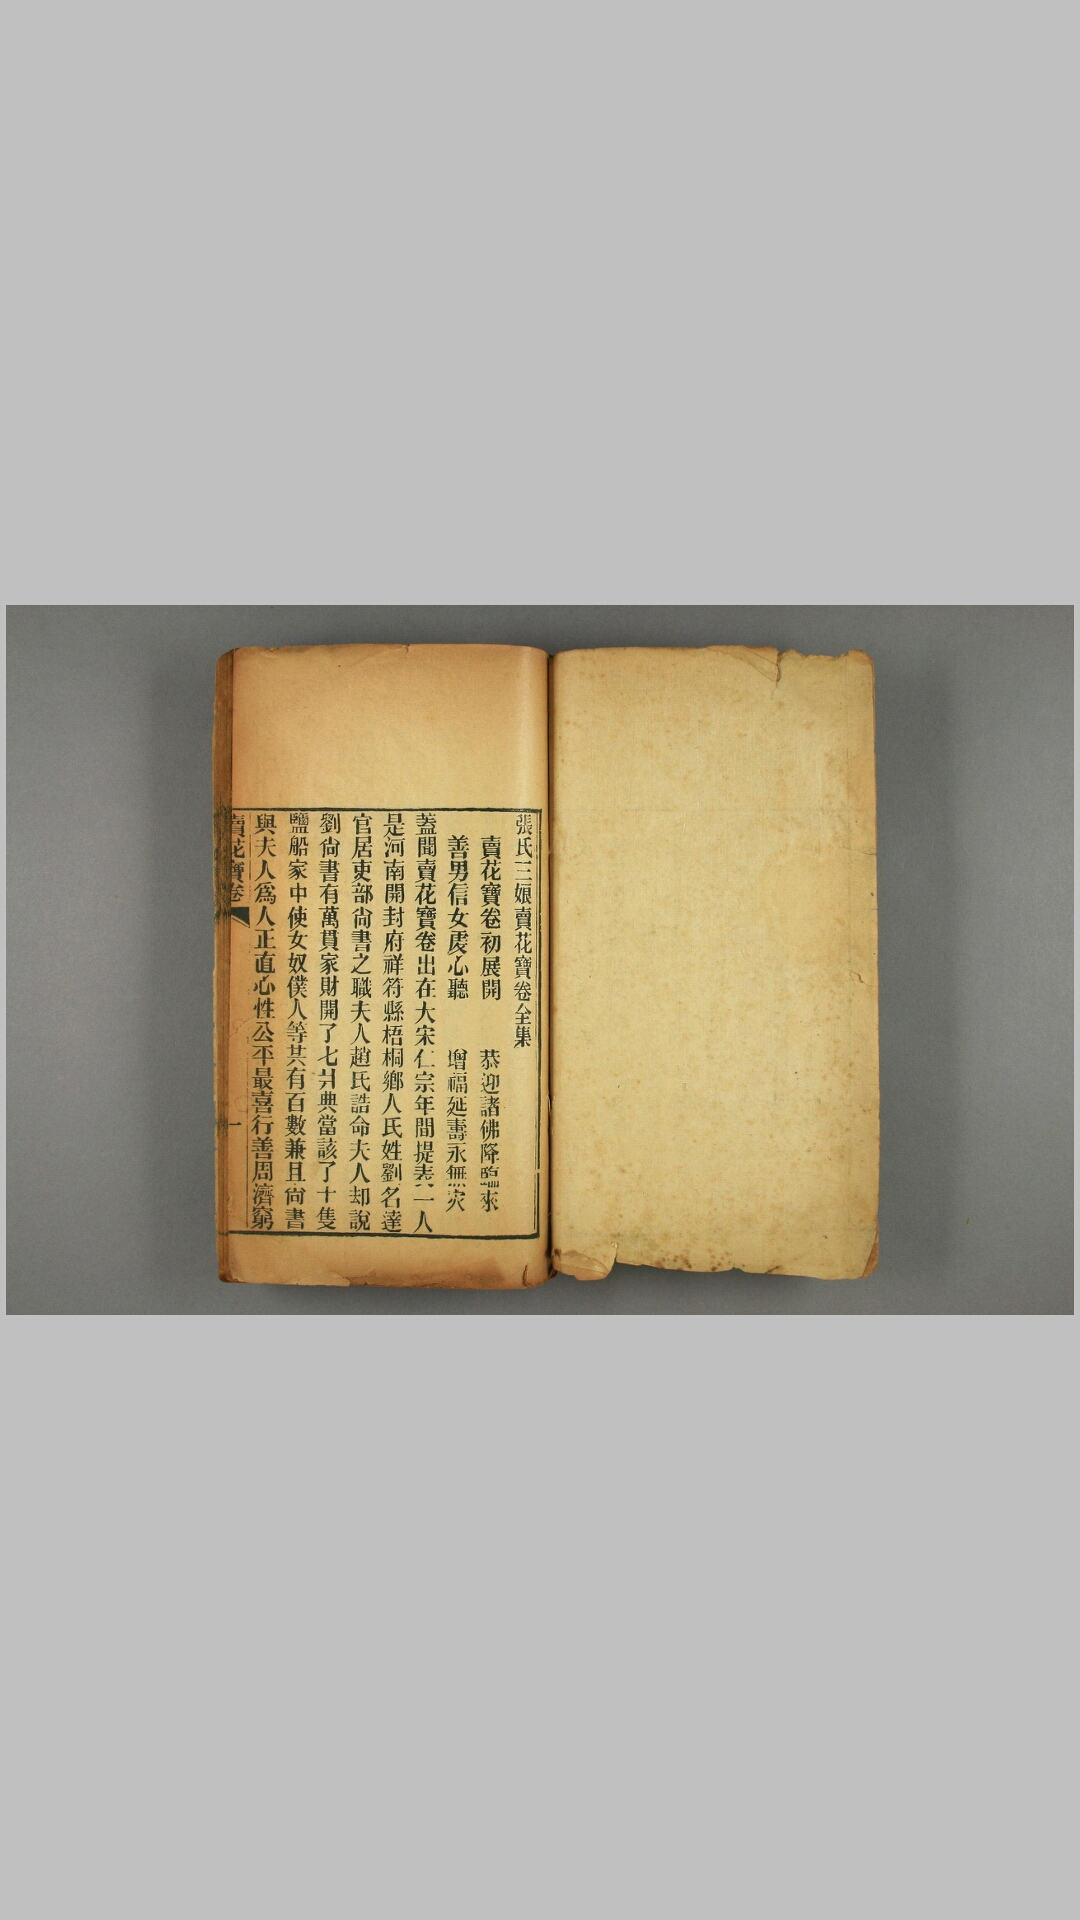 張氏三娘賣花寶卷全集
賣花寶卷初展開　恭迎諸佛降臨來
善男信女虔心聽　增福延壽永無灾
蓋聞賣花寶卷出在大宋仁宗年間提表一人
是河南開封府祥符縣梧桐鄉人氏姓劉名達
官居吏部尙書之職夫人趙氏誥命夫人却說
劉尙書有萬貫家財開了七爿典當該了十隻
鹽船家中使女奴僕人等共有百數兼且尙書
與夫人爲人正直心性公平最喜行善周濟窮
賣花寶卷　一